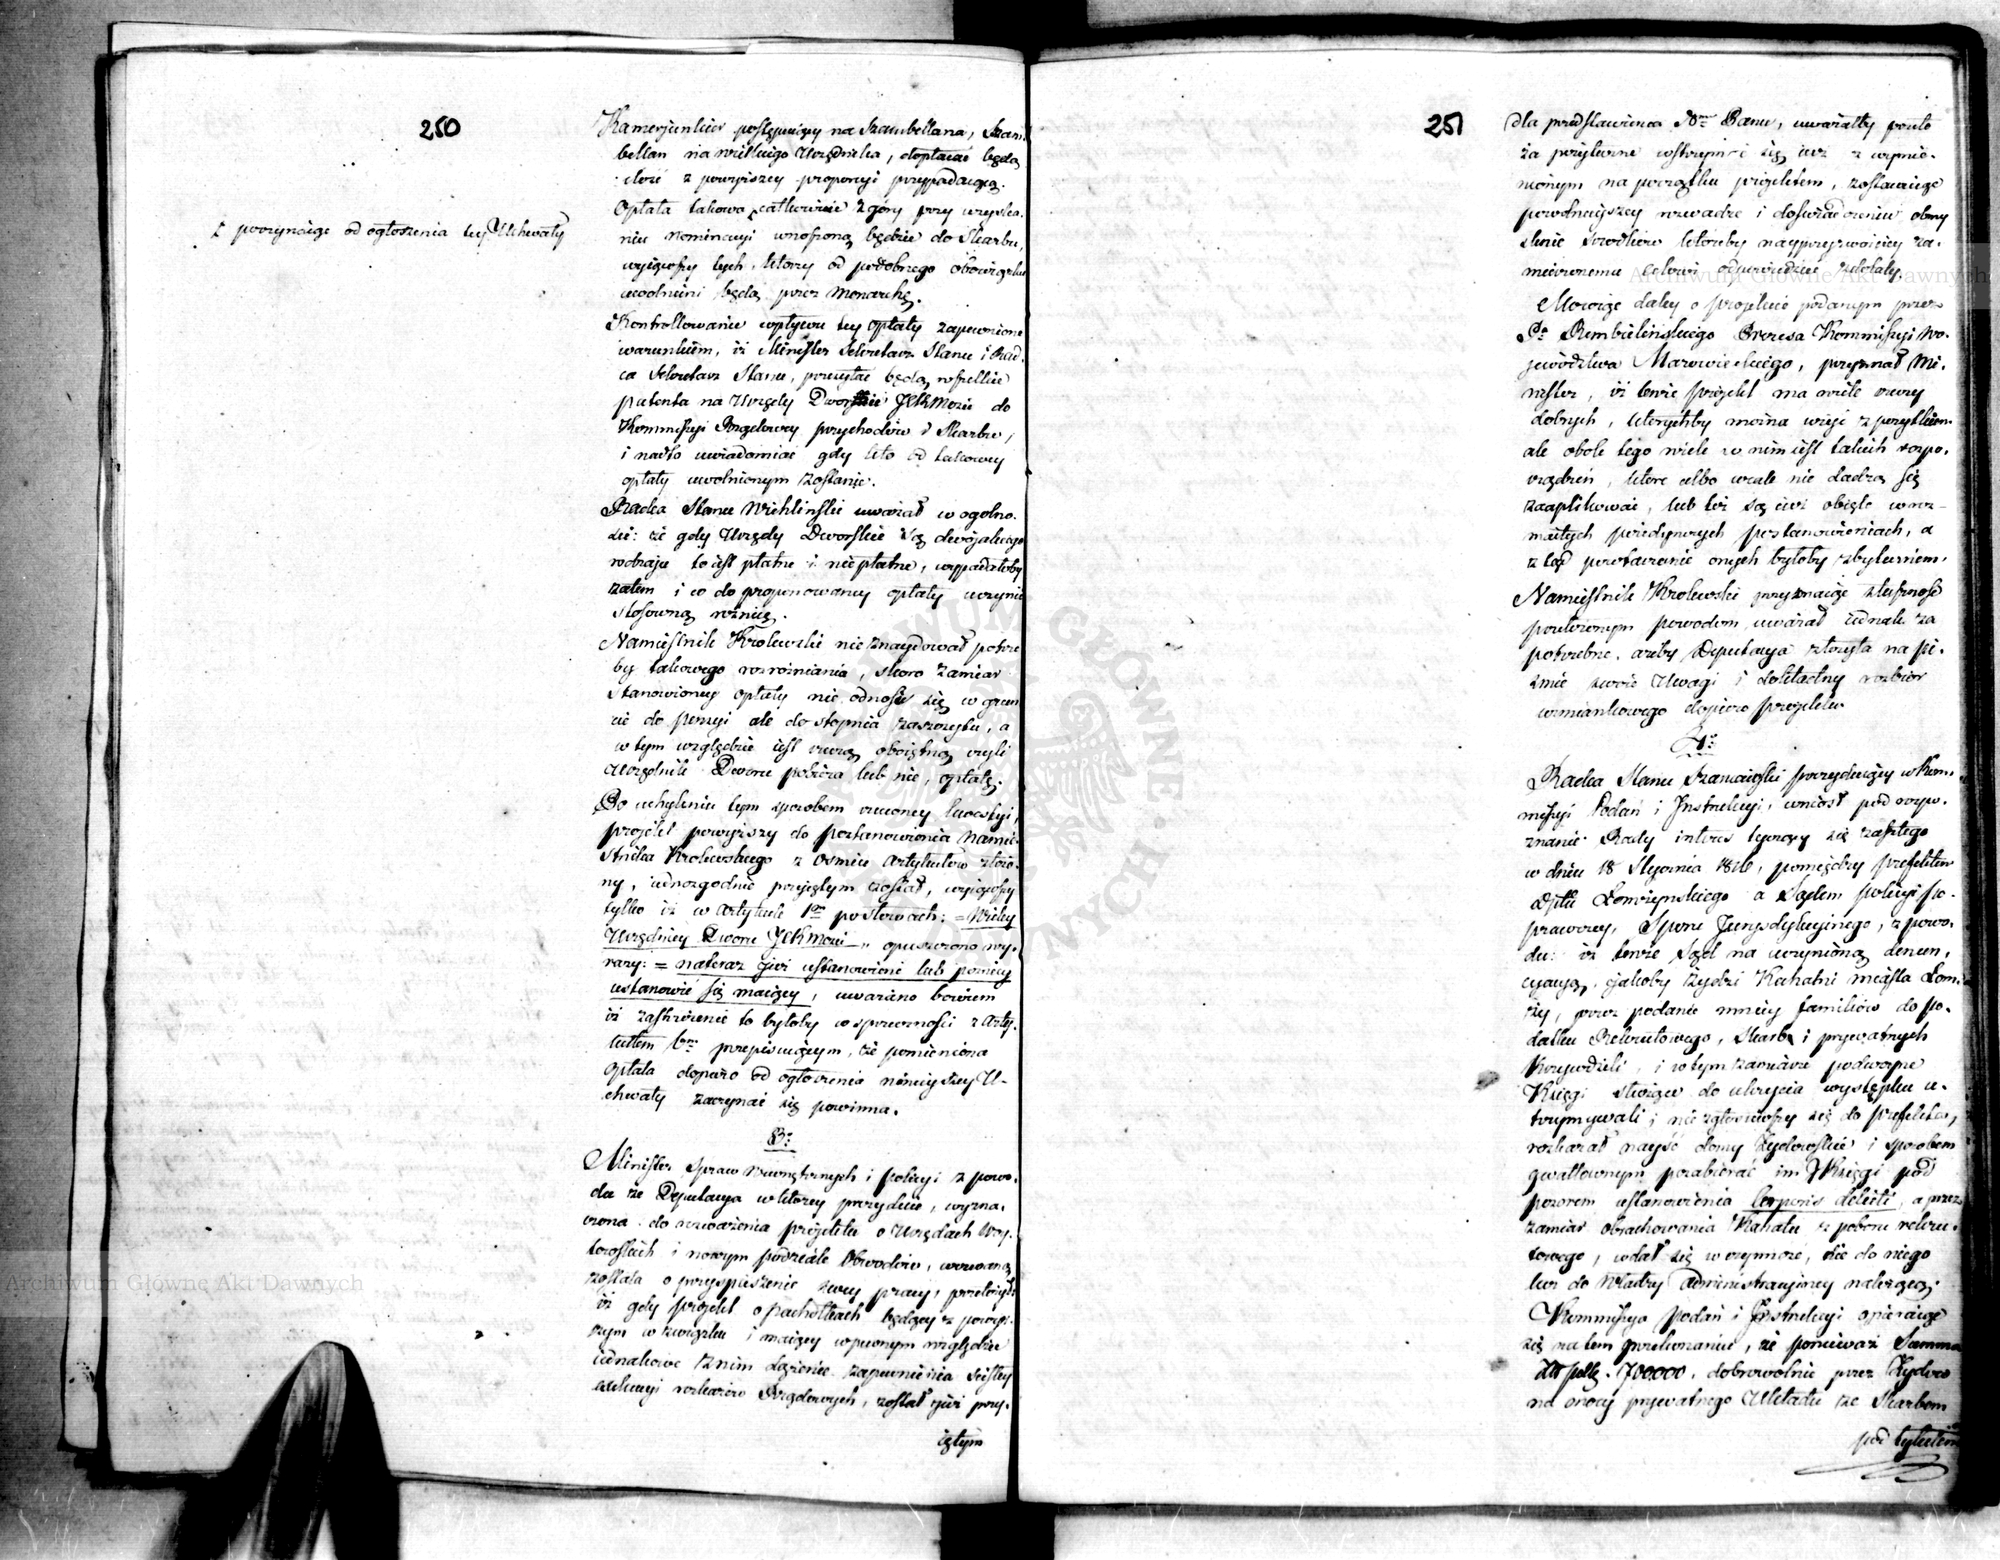 250
Kamerjunkier postępuiący na Szambellana, Szam
bellan na wielkiego Urzędnika, dopłacać będą
ilość z powyższey proporcyi przypadaiącą.
Opłata takowa całkowicie z góry przy uzyska.
niu nominacyi wnoszoną będzie do Skarbu,
wyiąwszy tych, którzy od podobnego obowiązku
uwolnieni będą przez Monarchę.
+ poczynaiąc od ogłoszenia tey Uchwały
Kontrollowanie wpływu tey opłaty zapewnione
warunkiem, iż Minister Sekretarz Stanu i Rad.
ca Sekretarz Stanu, przesyłać będą wszelkie
patenta na Urzędy Dworskie JCKMości do
Kommissyi Rządowey przychodów i Skarbu,
i nadto uwiadomiać gdy kto od takowey
opłaty uwolnionym zostanie.
Radca Stanu Wichliński uważał w ogólno.
ści: że gdy Urzędy Dworskie są dwoiakiego
rodzaju to iest płatne i niepłatne, wypadałoby
zatem i co do proponowaney opłaty uczynić
stosowną różnicę.
Namiestnik Królewski nie znaydował potrze
by takowego rozróżniania, skoro zamiar
stanowioney opłaty nie odnosi się w grun
cie do pensyi ale do stopnia zaszczytu, a
w tym względzie iest rzeczą oboiętną czyli
Urzędnik Dworu pobiera lub nie, opłatę.
Po uchyleniu tym sposobem rzeczoney kwestyi,
projekt powyższy do postanowienia Namie
stnika Królewskiego z ośmiu artykułów złożo.
ny, iednozgodnie przyiętym został, wyiąwszy
tylko iż w Artykule 1ym po słowach: = Wielcy
Urzędnicy Dworu JCKMości =„ opuszczono wy.
razy: = nateraz iuż ustanowieni lub poniey
ustanowić się maiący, uważano bowiem
iż zastrzeżenie to byłoby w sprzeczności z Arty.
kułem 6ym przepisuiącym, że pomieniona
opłata dopiero od ogłoszenia ninieyszey U-
chwały zaczynać się powinna.
3o
Minister Spraw Wewnętrznych i policyi z powo.
du że Deputacya w którey prezyduie, wyzna.
czona do rozważenia projektu o Urzędach Woy.
towskich i nowym podziale Obwodów, wezwaną
została o przyspieszenie swey pracy, przełożył:
iż gdy projekt o pachołkach będący z powyż
szym w związku i maiący w pewnym względzie
iednakowe z nim dążenie zapewnienia ścisłey
exekucyi rozkazów Rządowych, został iuż przy.
iętym
251
dla przedstawienia Nmu Panu, uważałby przeto
za pożyteczne wstrzymać się iuż z wymie.
nionym na początku projektem, zostawuiąc
powolnieyszey rozwadze i doświadczeniu obmy
ślenie środków któreby nayprzyzwoiciey za.
mierzonemu celowi odpowiedzieć zdołały.
Mówiąc daley o projekcie podanym przez
Pa Rembielińskiego Prezesa Kommissyi Wo.
jewództwa Mazowieckiego, przyznał Mi.
nister, iż tenże projekt ma wiele rzeczy
dobrych, którychby można użyć z pożytkiem
ale obok tego wiele w nim iest takich rozpo.
rządzeń, które albo wcale nie dadzą się
zaaplikować, lub też są iuż obięte w roz-
maitych poiedynczych postanowieniach, a
z tąd powtarzanie onych byłoby zbytecznem.
Namiestnik Królewski przyznaiąc słuszność
powierzonym powodom uważał iednak za
potrzebne, ażeby Deputacya złożyła na pi.
śmie swoie Uwagi i dokładny rozbiór
wzmiankowego dopiero projektu
4o
Radca Stanu Szaniawski prezyduiący w Kom.
missyi Podań i Instrukcyi, wniósł pod rozpo.
znanie Rady interes tyczący się zaszłego
w dniu 18 Stycznia 1816, pomiędzy prefektem
Dptu Łomżyńskiego a Sądem policyi po.
prawczey, Sporu Jurysdykcyinego, z powo.
du: iż tenże Sąd na uczynioną denun.
cyacyą, jakoby Żydzi Kahalni miasta Łom
ży, przez podanie mniey familiów do po.
datku Rekrutowego, Skarb i prywatnych
krzywdzili, i w tym zamiarze podwoyne
Księgi służące do ukrycia występku u.
trzymywali; nie zgłosiwszy się do prefekta,
rozkazał nayść domy Żydowskie i sposobem
gwałtownym pozabierać im Księgi pod
pozorem ustanowienia Corporis delicti, a przez
zamiar obrachowania Kahału z poboru rekru.
towego, wdał się w czynność, nie do niego
lecz do Władzy Administracyiney należącą.
Kommissya Podań i Instrukcyi opieraiąc
się na tem przekonaniu, że ponieważ Summa
Złt polk. 700000. dobrowolnie przez Żydów
na mocy prywatnego Układu ze Skarbem
pod tytułem